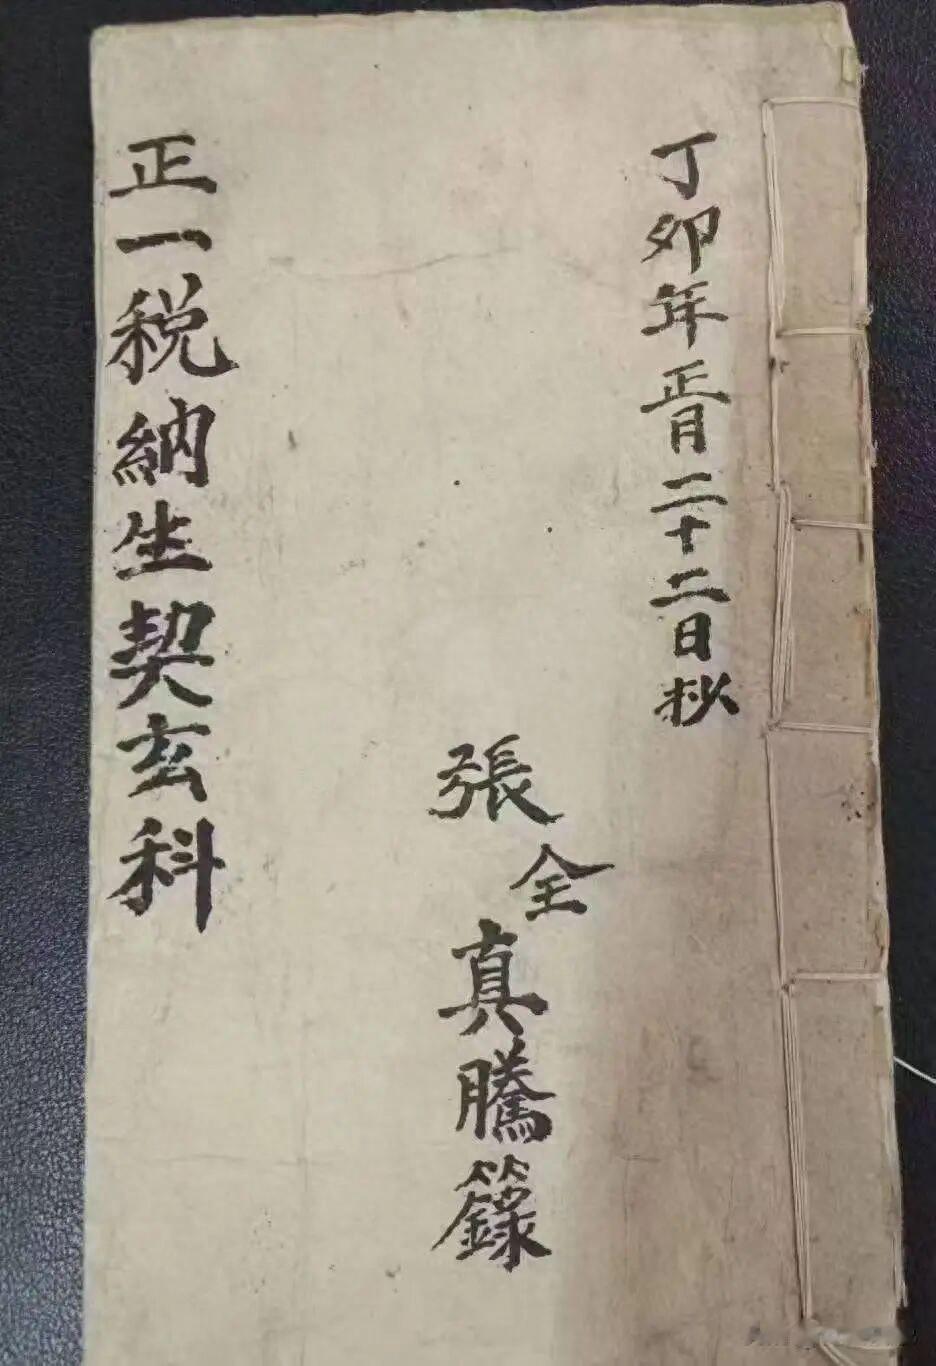 丁卯年正月二十二日抄
張全真騰籙
正一税納生契玄科